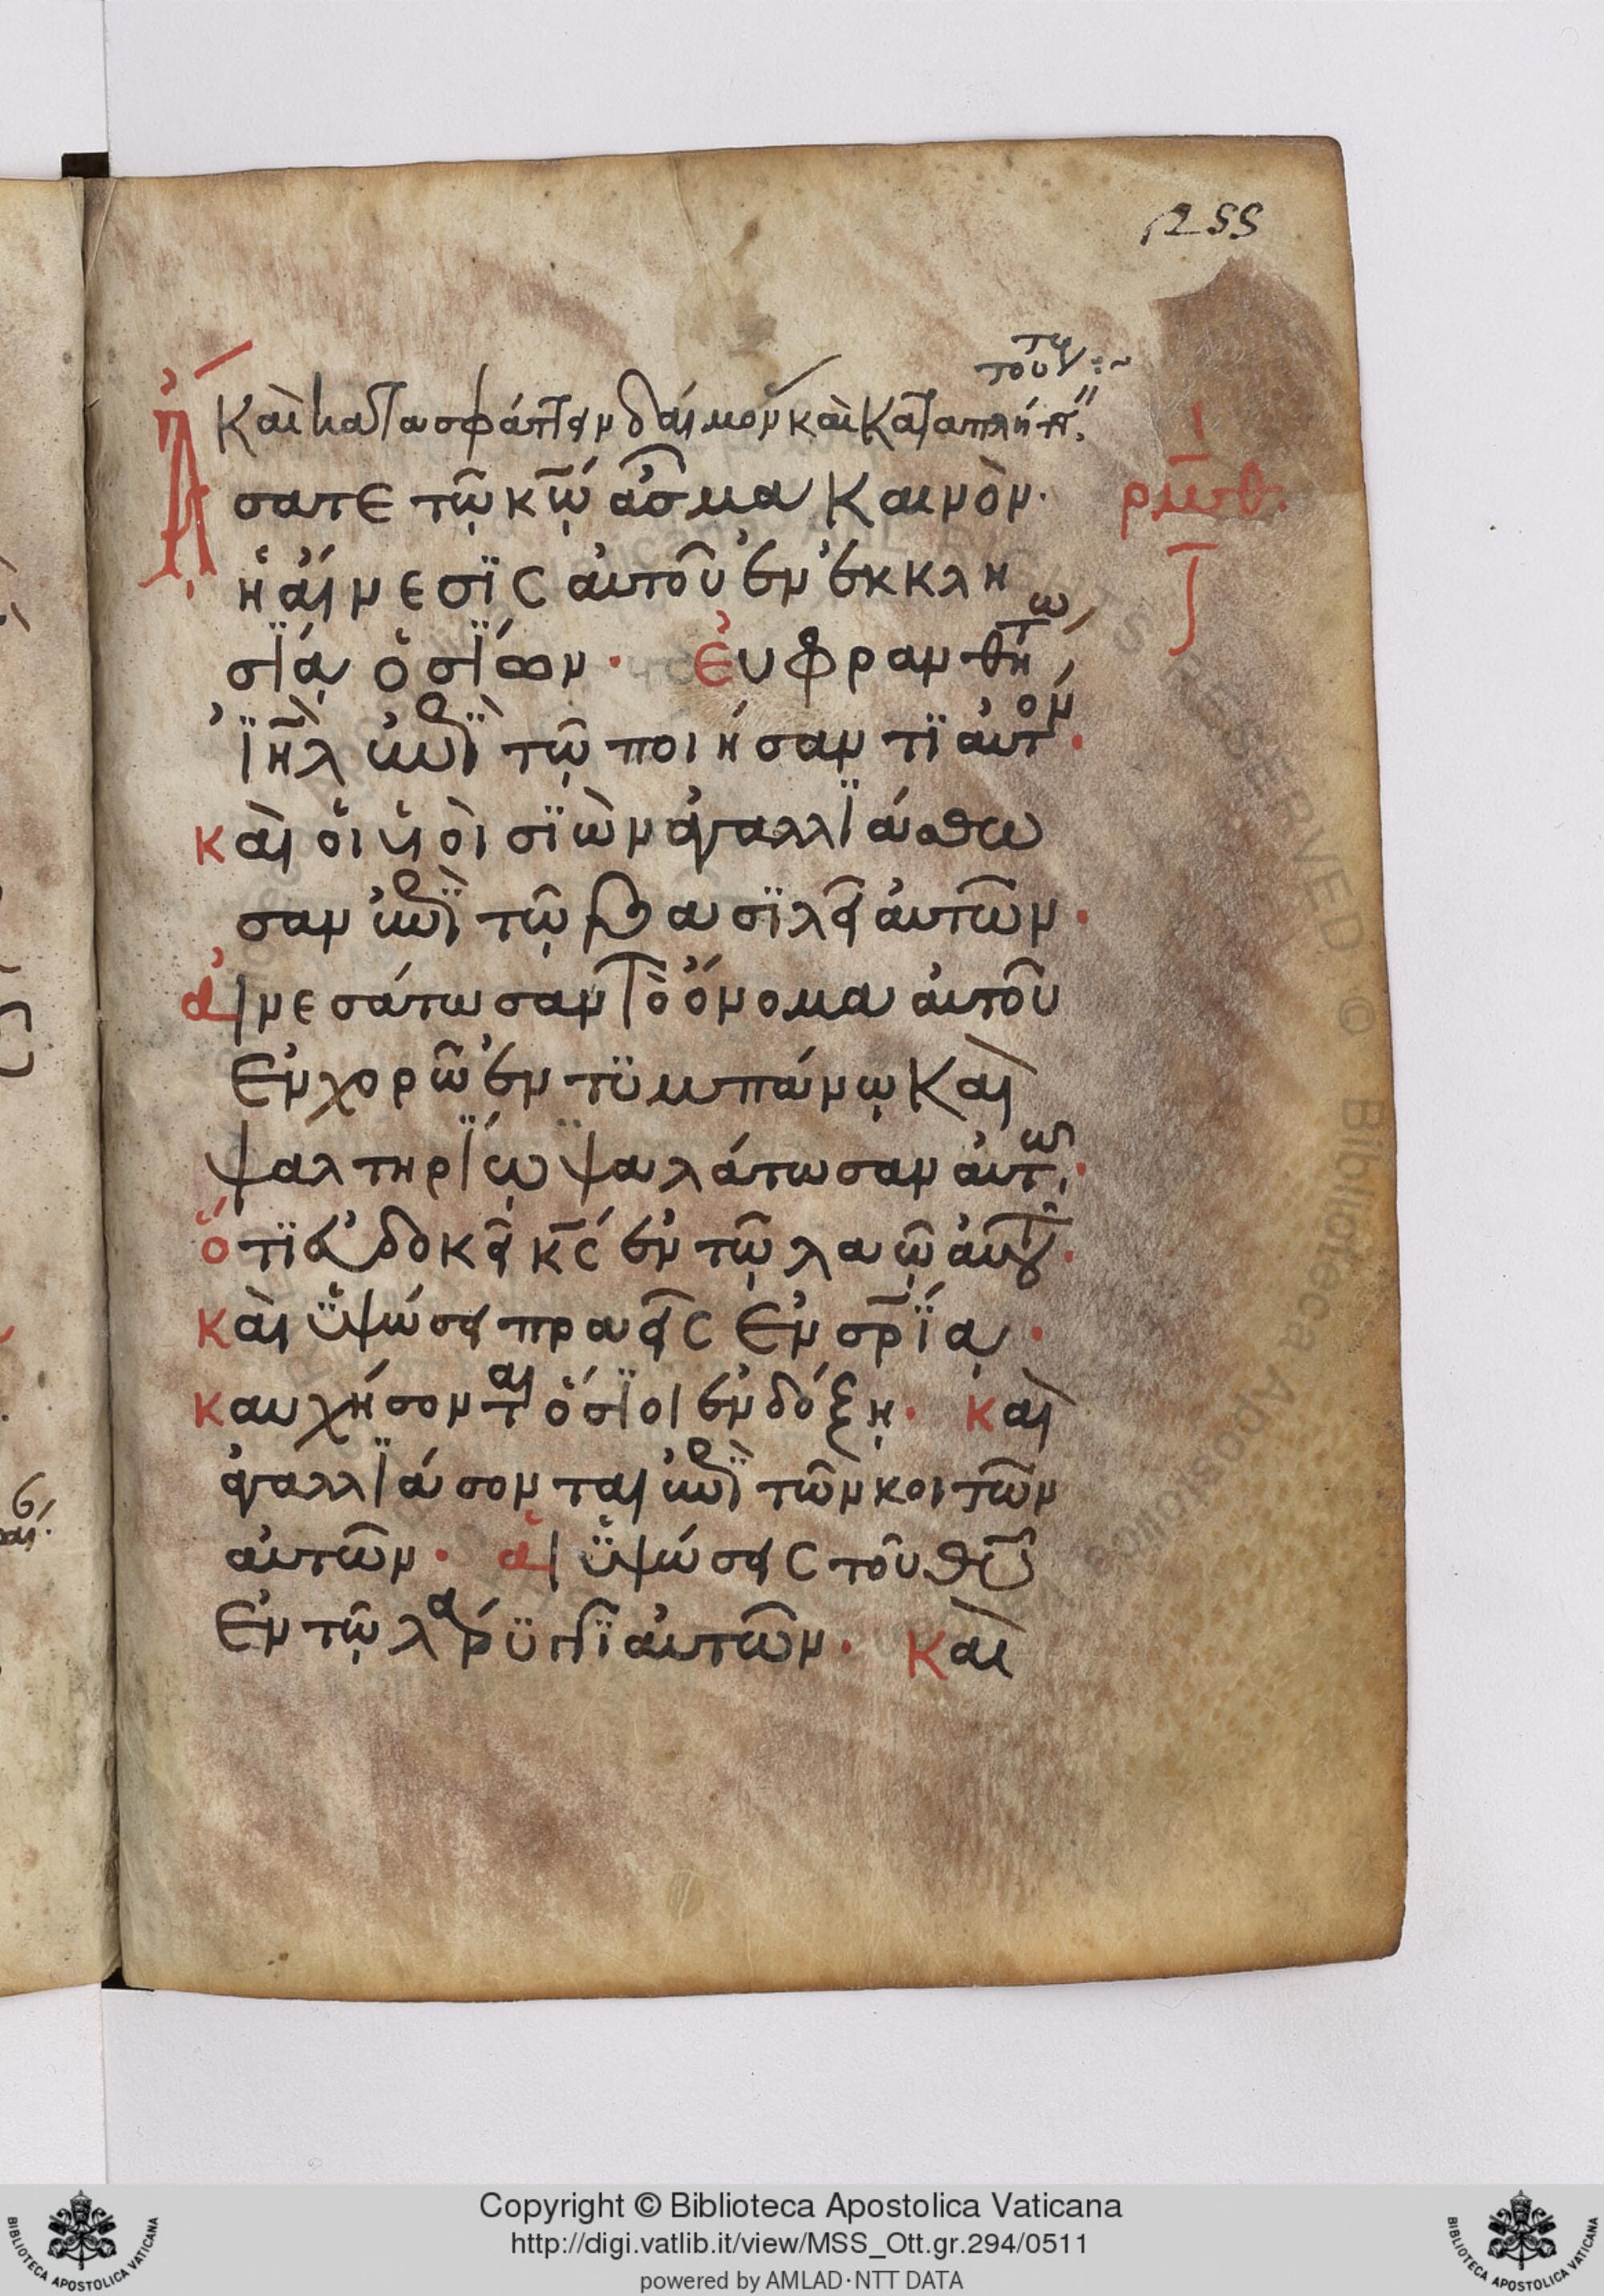 255
τούτ(ων) :~
Καὶ κατασφάττειν δαίμον(ας) καὶ καταπλήττ(ειν)
Ἄσατε τῷ κῷ ᾆσμα καινὸν· ρμθ.
ἡ αἴνεσϊς αὐτοῦ ἐν ἐκκλη
σΐᾳ ὁσΐων· εὐφρανθήτω
ϊῆλ ἐπῒ τῷ ποιήσαντϊ αὐτόν·
καὶ οἱ υἱοὶ σϊὼν ἀγαλλϊάσθω
σαν ἐπῒ τῷ βασϊλεῖ αὐτῶν·
αἰνεσάτωσαν τὸ ὄνομα αὐτοῦ
ἐν χορῷ ἐν τϋμπάνῳ καὶ
ψαλτηρΐῳ ψαλάτωσαν αὐτῷ·
ὅτϊ εὐδοκεῖ κς ἐν τῷ λαῷ αὐτοῦ·
καὶ ὑψώσει πραεῖς ἐν σρΐᾳ·
καυχήσονται ὅσϊοι ἐν δόξῃ· καὶ
ἀγαλλϊάσονται ἐπῒ τῶν κοιτῶν
αὐτῶν· αἱ ὑψώσεις τοῦ θυ
ἐν τῷ λάρϋγγϊ αὐτῶν· καὶ
Copyright © Biblioteca Apostolica Vaticana
http://digi.vatlib.it/view/MSS_Ott.gr.294/0511
powered by AMLAD·NTT DATA
BIBLIOTECA APOSTOLICA VATICANA
BIBLIOTECA APOSTOLICA VATICANA